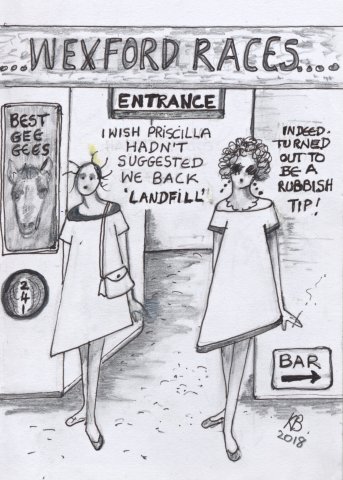 ...WEXFORD RACES....
ENTRANCE
BEST
GEE
GEES
I WISH PRISCILLA
HADN'T
SUGGESTED
WE BACK
'LANDFILL'
INDEED.
TURNED
OUT TO
BE A
RUBBISH
TIP!
241
BAR
KB.
2018